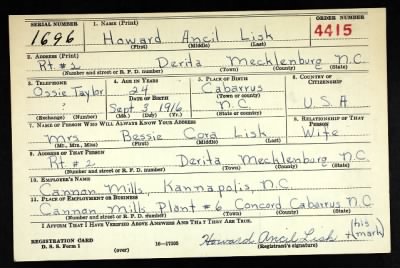 SERIAL NUMBER 1. NAME (Print) ORDER NUMBER
1696 Howard Ancil Lisk 4415
(First) (Middle) (Last)
2. ADDRESS (Print)
Rt # 2 Derita Mecklenburg N.C.
(Number and street or R. F. D. number) (Town) (County) (State)
3. TELEPHONE 4. AGE IN YEARS 5. PLACE OF BIRTH 6. COUNTRY OF CITIZENSHIP
Ossie Taylor 24 Cabarrus
DATE OF BIRTH (Town or county)
? Sept 8 1916 N.C U.S.A
(Exchange) (Number) (Mo.) (Day) (Yr.) (State or country)
7. NAME OF PERSON WHO WILL ALWAYS KNOW YOUR ADDRESS 8. RELATIONSHIP OF THAT PERSON
Mrs Bessie Cora Lisk Wife
(Mr., Mrs., Miss) (First) (Middle) (Last)
9. ADDRESS OF THAT PERSON
Rt # 2 Derita Mecklenburg N.C.
(Number and street or R. F. D. number) (Town) (County) (State)
10. EMPLOYER'S NAME
Cannon Mills, Kannapolis, N.C
11. PLACE OF EMPLOYMENT OR BUSINESS
Cannon Mills Plant #6 Concord Cabarrus N.C
(Number and street or R. F. D. number) (Town) (County) (State)
I AFFIRM THAT I HAVE VERIFIED ABOVE ANSWERS AND THAT THEY ARE TRUE.
REGISTRATION CARD
D. S. S. Form 1 (over) 16—17105 Howard Ancil Lisk (his + mark)
(Registrant's signature)